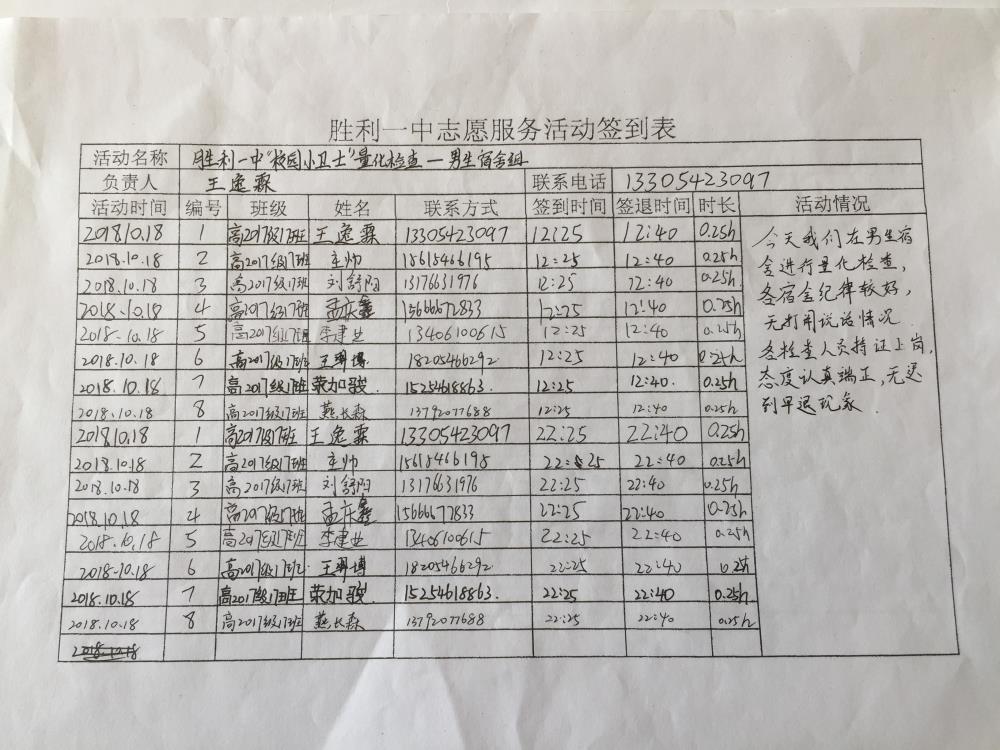 胜利一中志愿服务活动签到表
活动名称 胜利一中"校园小卫士"量化检查—男生宿舍组
负责人 王逸霖 联系电话 13305423097
活动时间 编号 班级 姓名 联系方式 签到时间 签退时间 时长 活动情况
2018.10.18 1 高2017级17班 王逸霖 13305423097 12:25 12:40 0.25h
2018.10.18 2 高2017级17班 主帅 15615466195 12:25 12:40 0.25h
2018.10.18 3 高2017级17班 刘舒阳 13176631976 12:25 12:40 0.25h
2018.10.18 4 高2017级17班 孟庆鑫 15666672833 12:25 12:40 0.25h
2018.10.18 5 高2017级17班 李建业 13406100615 12:25 12:40 0.25h
2018.10.18 6 高2017级17班 王羿博 18205466292 12:25 12:40 0.25h
2018.10.18 7 高2017级17班 荣加骏 15254618863. 12:25 12:40. 0.25h
2018.10.18 8 高2017级17班 燕长森 13792077688 12:25 12:40 0.25h
2018.10.18 1 高2017级17班 王逸霖 13305423097 22:25 22:40 0.25h
2018.10.18 2 高2017级17班 主帅 15615466195 22:25 22:40 0.25h
2018.10.18 3 高2017级17班 刘舒阳 13176631976 22:25 22:40 0.25h
2018.10.18 4 高2017级17班 孟庆鑫 15666672833 22:25 22:40 0.25h
2018.10.18 5 高2017级17班 李建业 13406100615 22:25 22:40 0.25h
2018-10.18 6 高2017级17班 王羿博 18205466292 22:25 22:40 0.25h
2018.10.18 7 高2017级17班 荣加骏. 15254618863. 22:25 22:40 0.25h
2018.10.18 8 高2017级17班 燕长森 13792077688 22:25 22:40 0.25h
2018.10.18
今天我们在男生宿
舍进行量化检查,
各宿舍纪律较好,
无打闹说话情况.
各检查人员持证上岗,
态度认真端正,无迟
到早退现象.